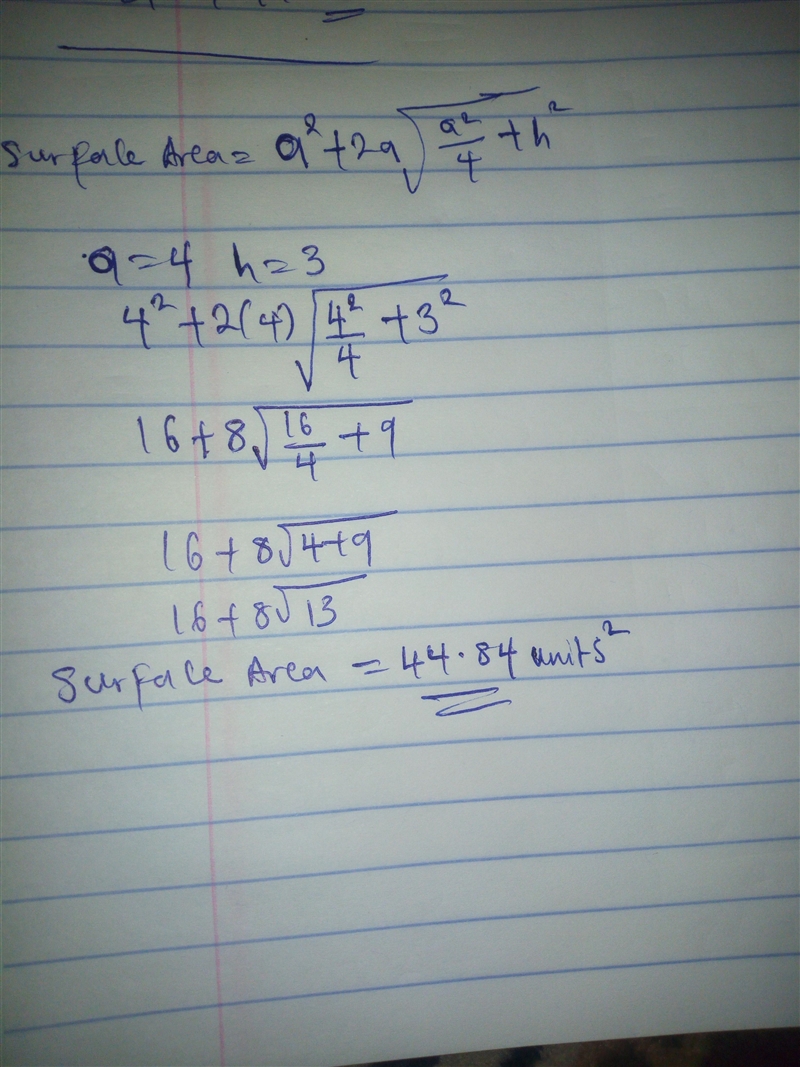 Surface Area = a² + 2a√(a²/4 + h²)
a = 4 h = 3
4² + 2(4)√(4²/4 + 3²)
16 + 8√(16/4 + 9)
16 + 8√(4+9)
16 + 8√13
Surface Area = 44.84 units²